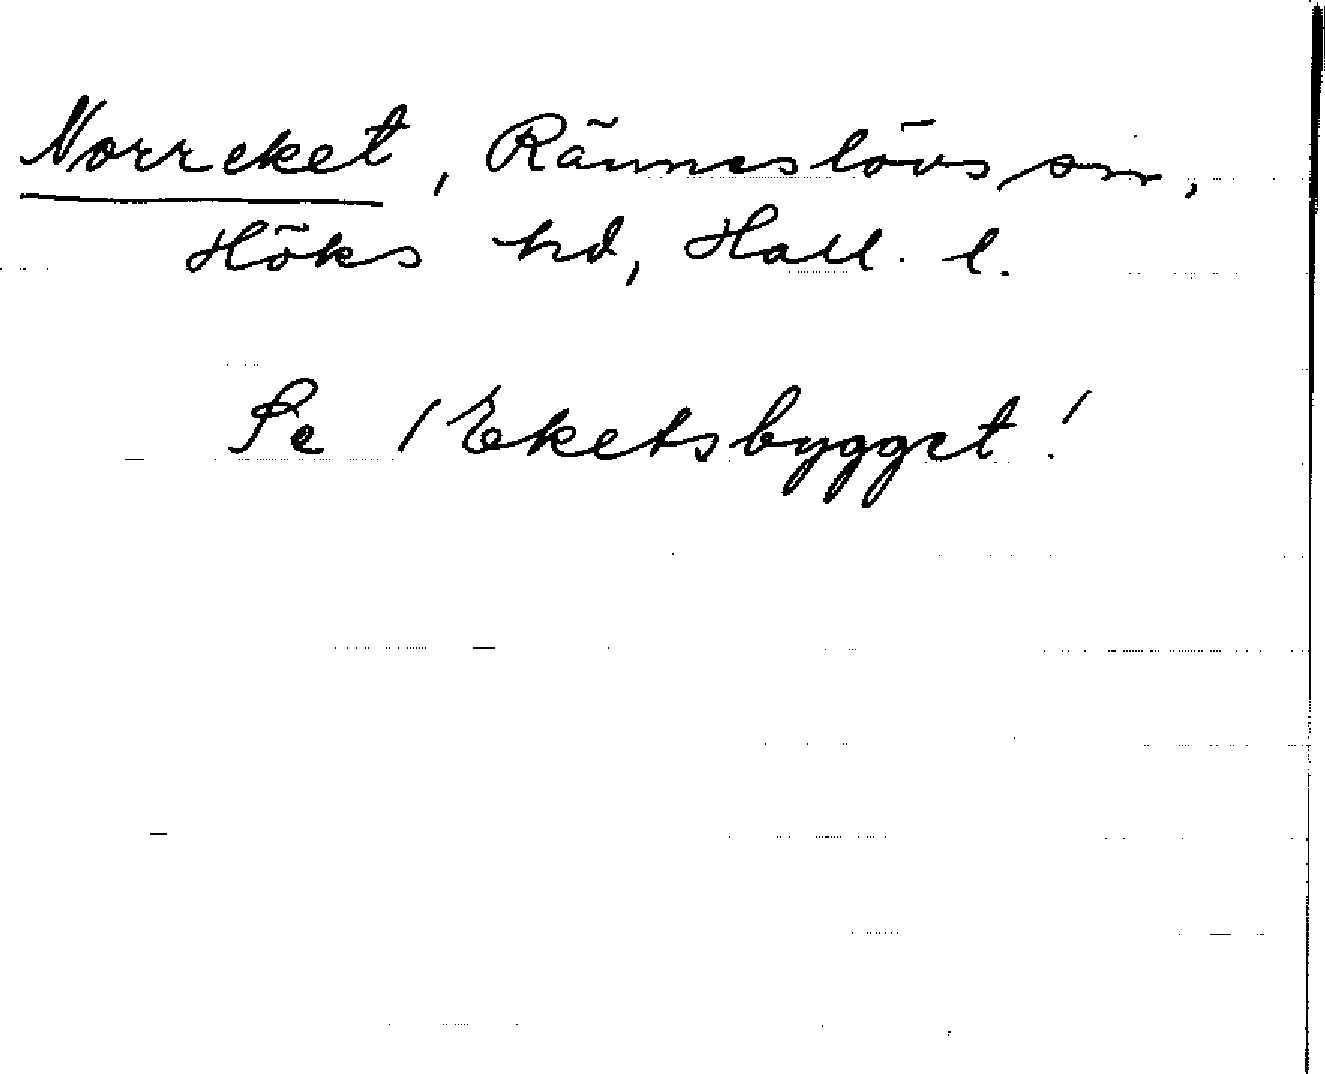 Norreket, Ränneslövs sn,
Höks hd, Hall. l.
Se /Eketsbygget!